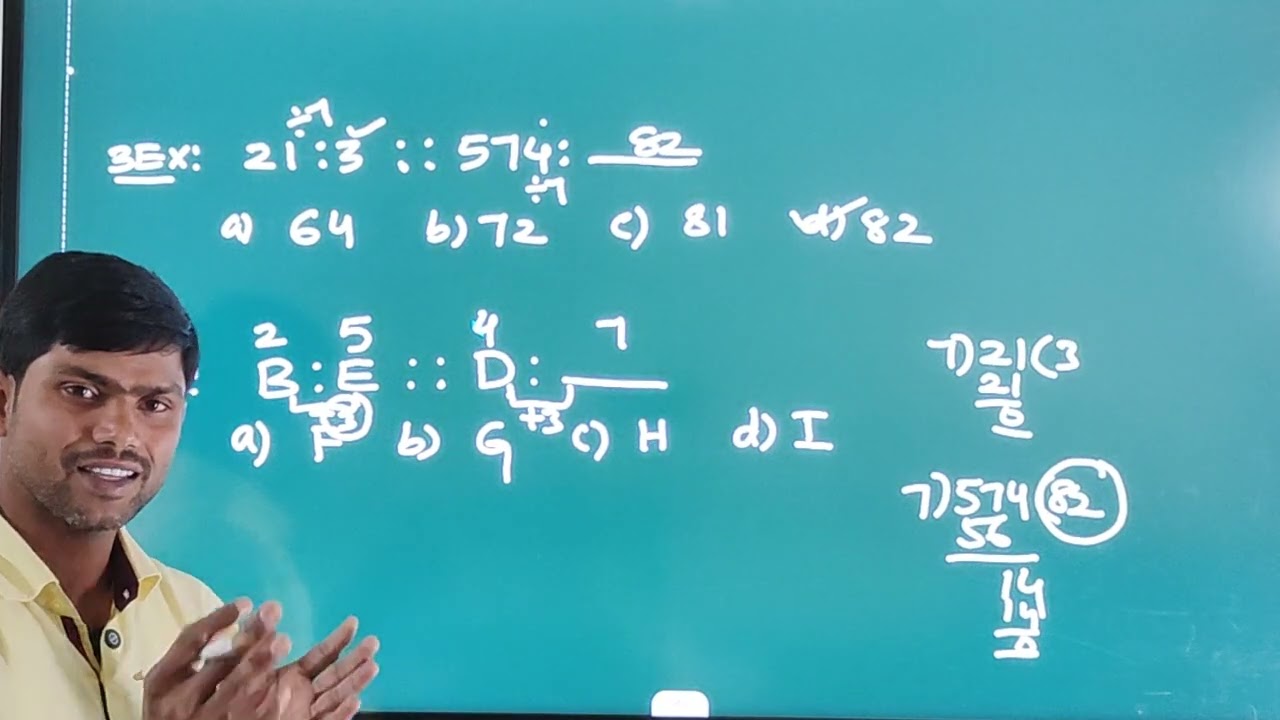 ÷7
3Ex: 21 : 3 :: 574 : 82
÷7
a) 64 b) 72 c) 81 d) 82
2 5 4 7
: B : E :: D : ___
+3 +3
a) F b) G c) H d) I
7)21(3
21
0
7)574(82
56
14
14
0